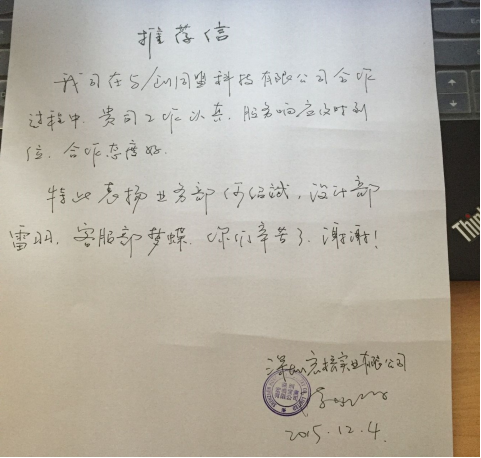 推荐信
我司在与小创同盟科技有限公司合作
过程中,贵司工作认真,服务响应及时到
位,合作态度好.
特此表扬业务部何绍斌,设计部
雷羽,客服部梦蝶.你们辛苦了.谢谢!
深圳宏 实业有限公司
2015.12.4
Think